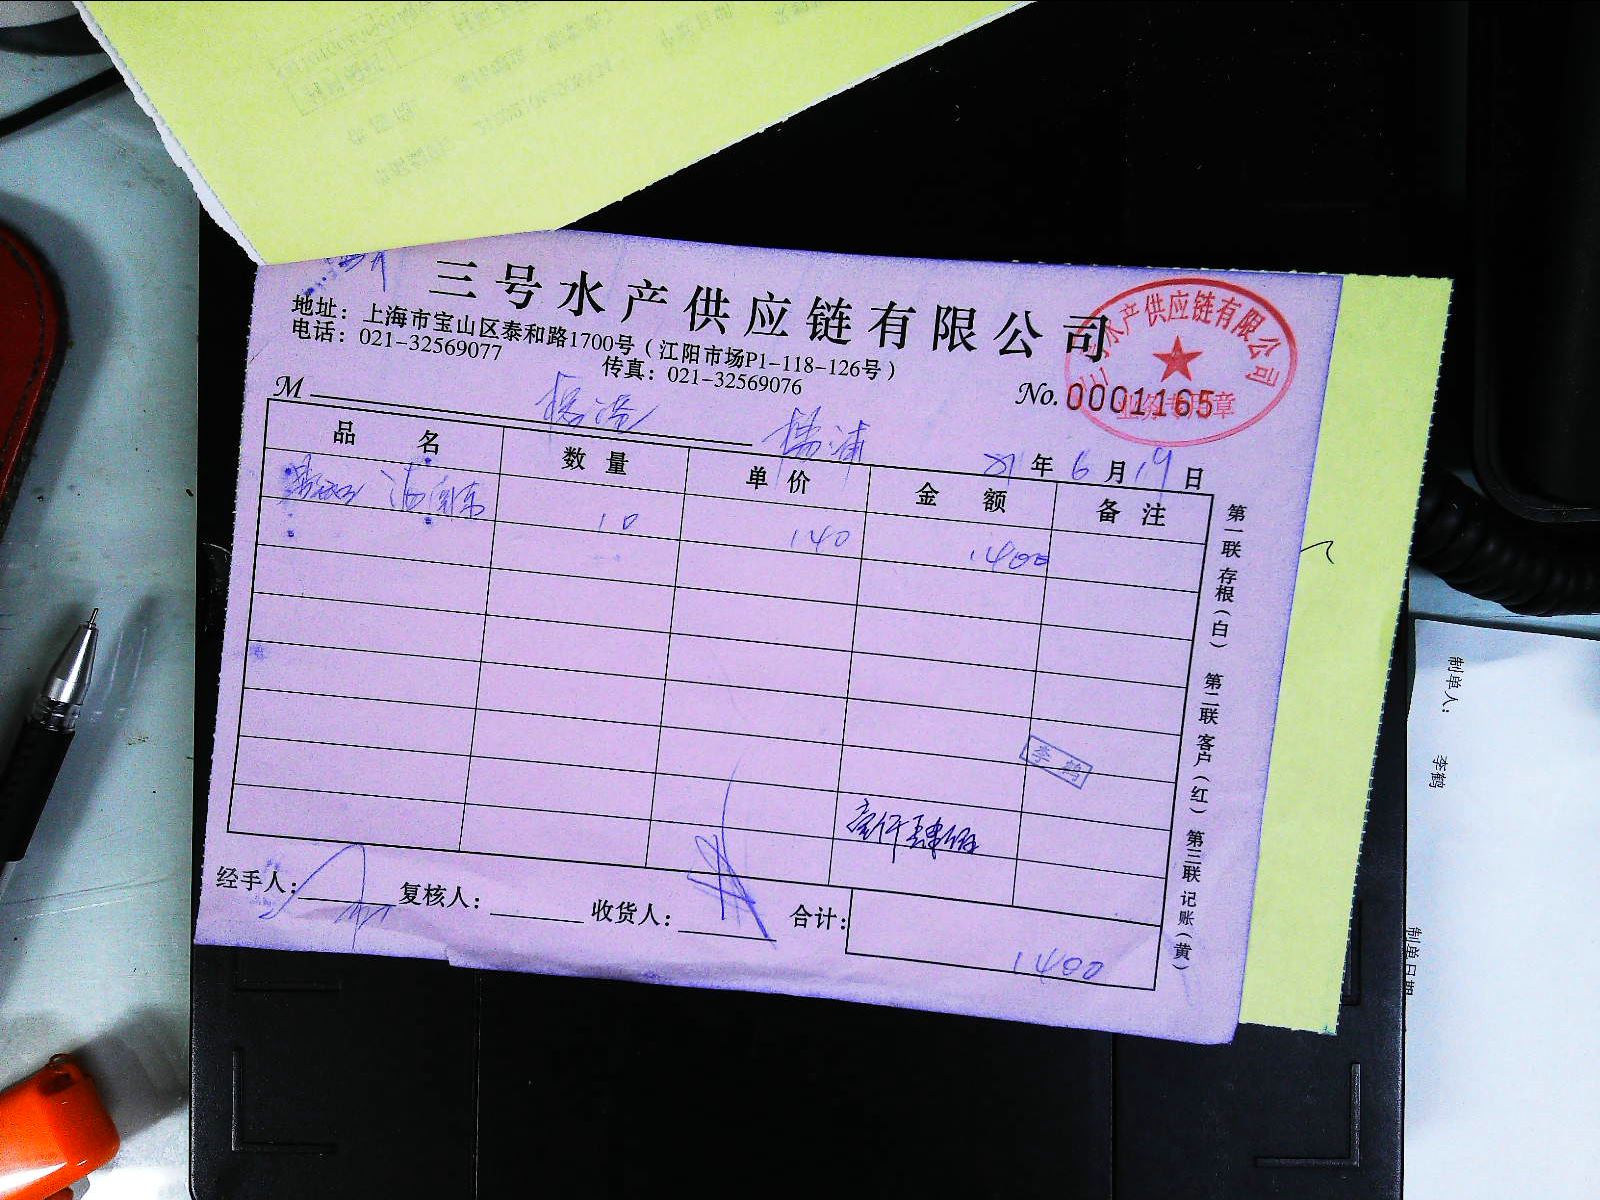 三号水产供应链有限公司
地址：上海市宝山区泰和路1700号（江阳市场P1-118-126号）
电话：021-32569077 传真：021-32569076
三号水产供应链有限公司
业务专用章
M No.0001165
杨浦
21年6月19日
品名 数量 单价 金额 备注
10 140 1400
李鹤
壹仟肆佰
经手人： 复核人： 收货人： 合计：
1400
第一联 存根（白） 第二联 客户（红） 第三联 记账（黄）
制单人： 李鹤
制单日期